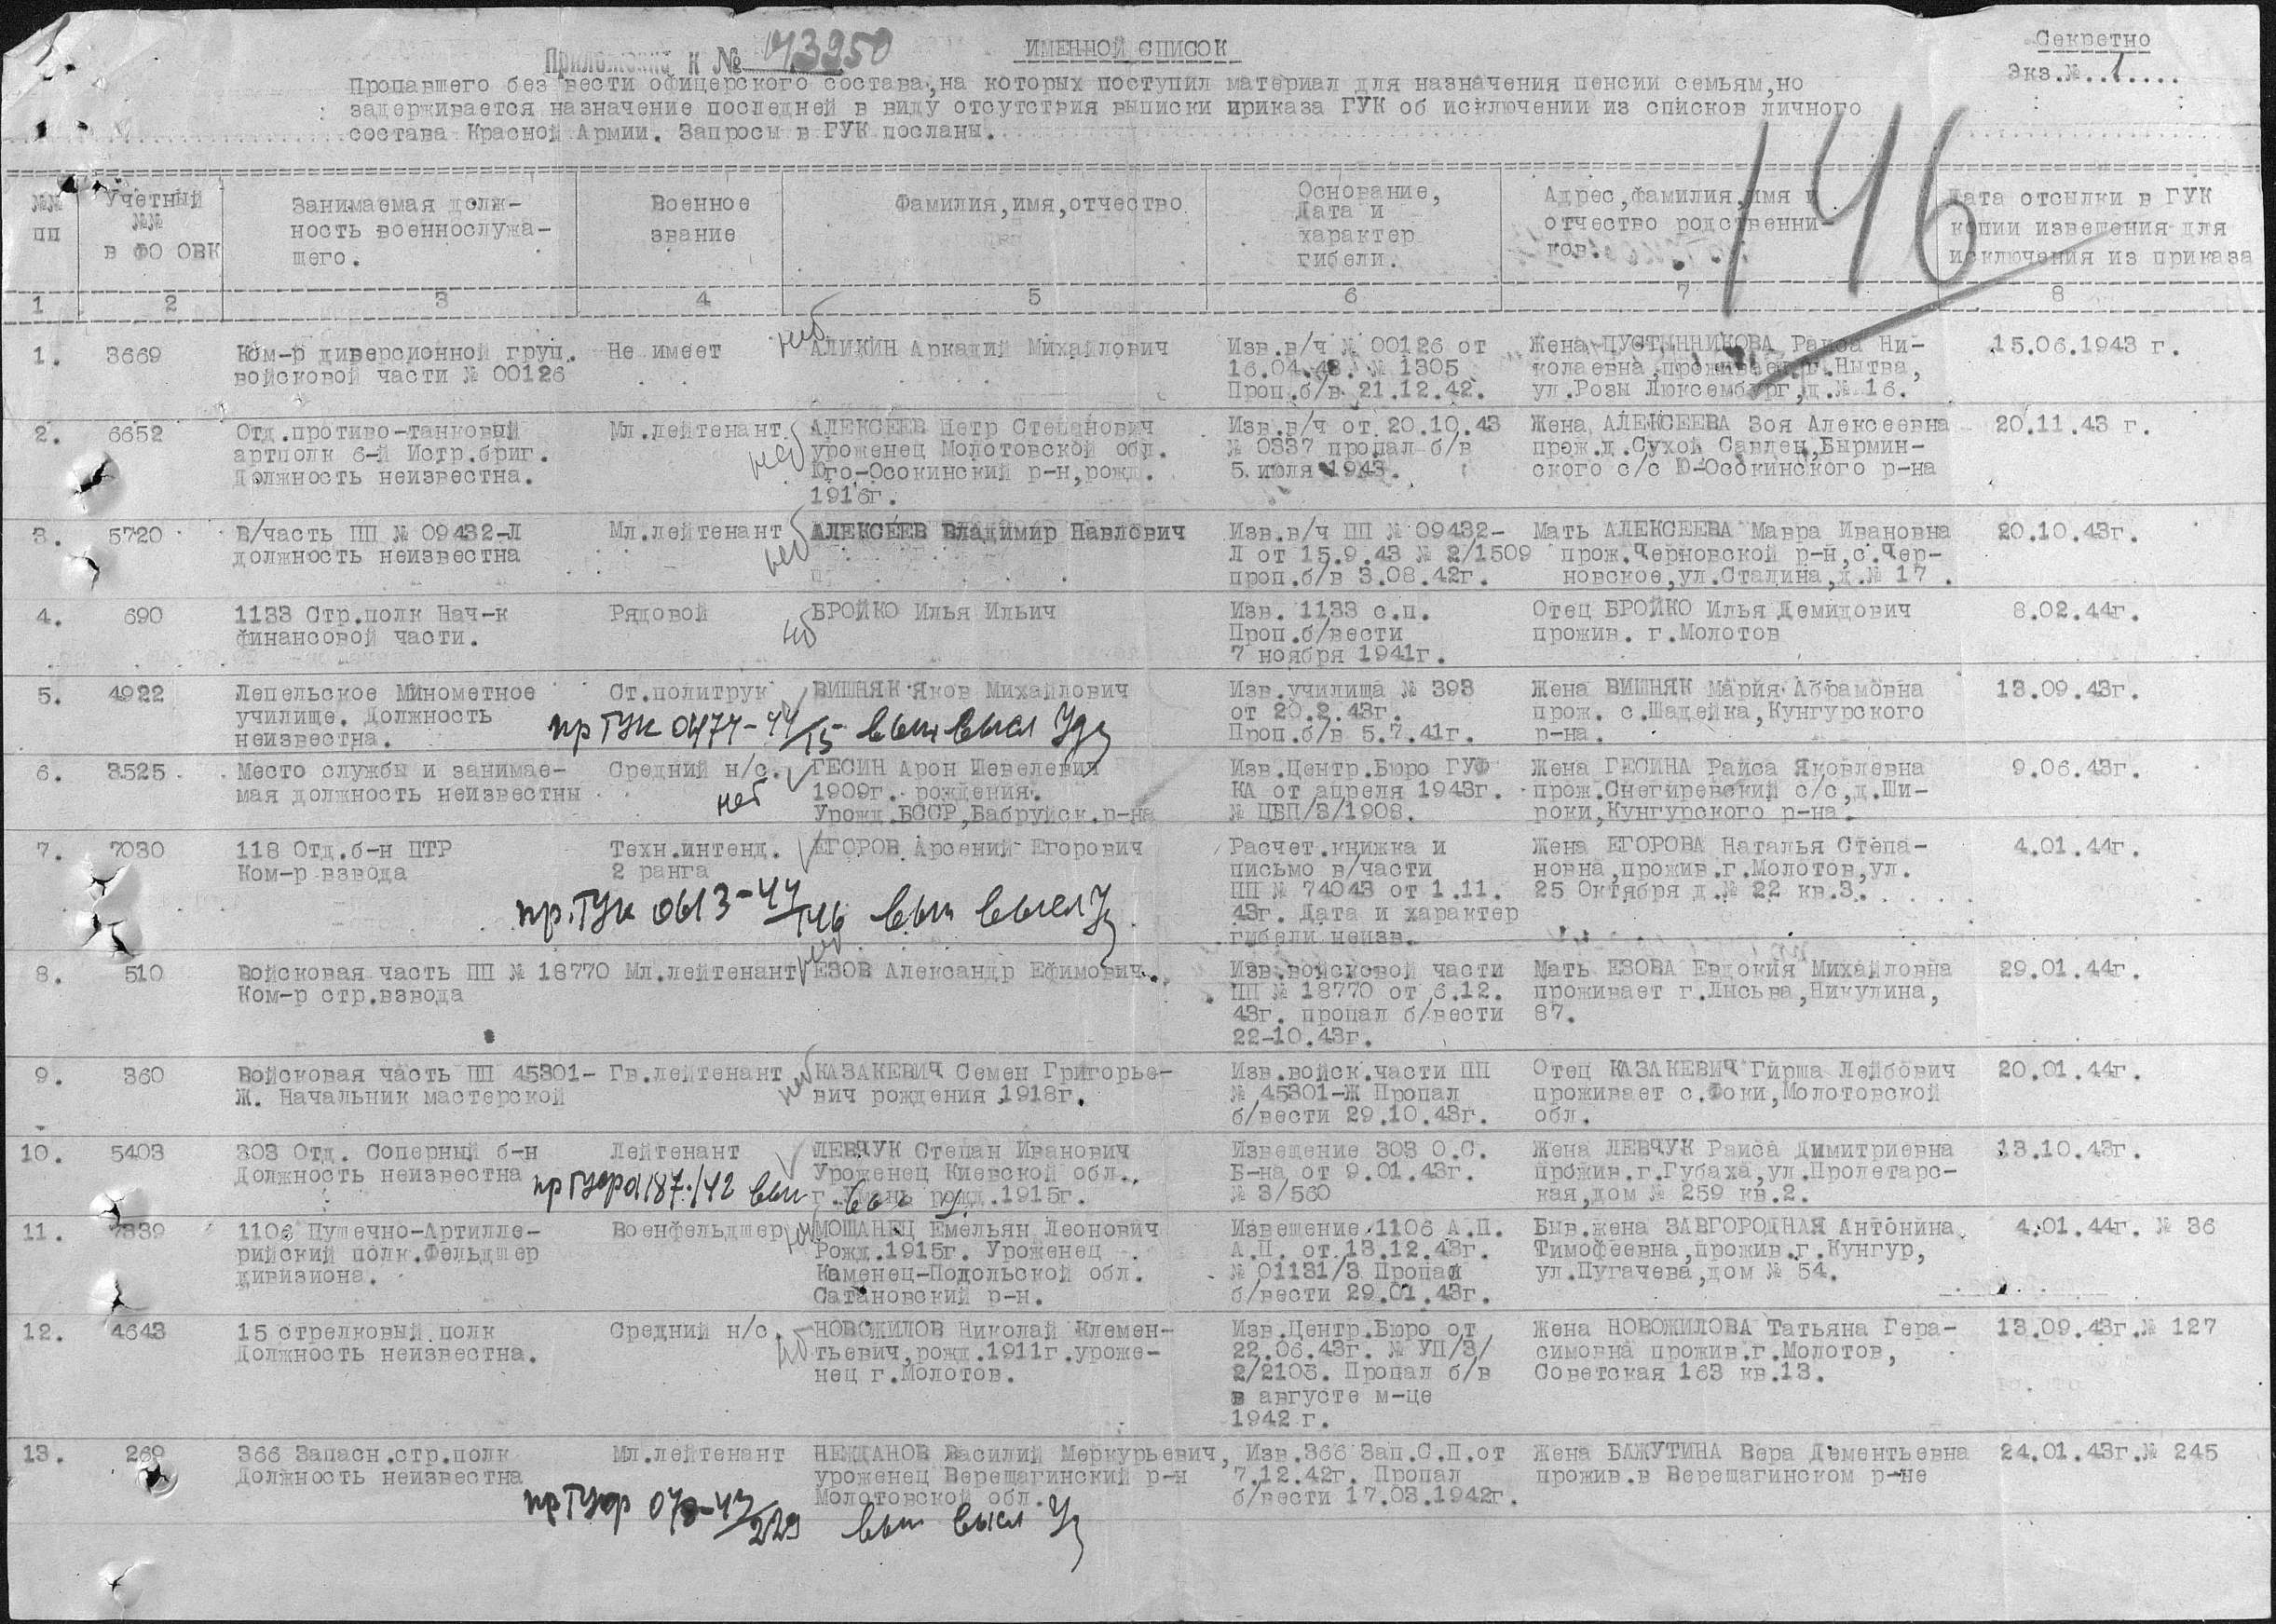 Приложение к № 73950
ИМЕННОЙ СПИСОК
Секретно
Экз.№..1....
Пропавшего без вести офицерского состава,на которых поступил материал для назначения пенсии семьям,но
задерживается назначение последней в виду отсутствия выписки приказа ГУК об исключении из списков личного
состава Красной Армии. Запросы в ГУК посланы.
146
№№
пп
Учетный
№№
в ФО ОВК
Занимаемая долж-
ность военнослужа-
щего.
Военное
звание
Фамилия,имя,отчество
Основание,
Дата и
характер
гибели.
Адрес,фамилия,имя и
отчество родственни-
ков.
Дата отсылки в ГУК
копии извещения для
исключения из приказа
1 2 3 4 5 6 7 8
1.
3669
Ком-р диверсионной груп.
войсковой части № 00126
Не имеет
АЛИКИН Аркадий Михайлович
Изв.в/ч № 00126 от
16.04.43. № 1305
Проп.б/в 21.12.42.
Жена ПУСТЫННИКОВА Раиса Ни-
колаевна,проживает г.Нытва,
ул.Розы Люксембург,д.№ 16.
15.06.1943 г.
2.
6652
Отд.противо-танковый
артполк 6-й Истр.бриг.
Должность неизвестна.
Мл.лейтенант
АЛЕКСЕЕВ Петр Степанович
уроженец Молотовской обл.
Юго-Осокинский р-н,рожд.
1916г.
Изв.в/ч от 20.10.43
№ 0337 пропал б/в
5 июля 1943.
Жена АЛЕКСЕЕВА Зоя Алексеевна
прож.д.Сухой Савден,Бырмин-
ского с/с Ю-Осокинского р-на
20.11.43 г.
3.
5720
В/часть ПП № 09432-Л
должность неизвестна
Мл.лейтенант
АЛЕКСЕЕВ Владимир Павлович
Изв.в/ч ПП № 09432-
Л от 15.9.43 № 2/1509
проп.б/в 3.08.42г.
Мать АЛЕКСЕЕВА Мавра Ивановна
прож.Черновской р-н,с.Чер-
новское,ул.Сталина,д.№ 17.
20.10.43г.
4.
690
1133 Стр.полк Нач-к
финансовой части.
Рядовой
БРОЙКО Илья Ильич
Изв. 1133 с.п.
Проп.б/вести
7 ноября 1941г.
Отец БРОЙКО Илья Демидович
прожив. г.Молотов
8.02.44г.
5.
4922
Лепельское Минометное
училище. Должность
неизвестна.
Ст.политрук
ВИШНЯК Яков Михайлович
Изв.училища № 393
от 20.2.43г.
Проп.б/в 5.7.41г.
Жена ВИШНЯК Мария Абрамовна
прож. с.Шадейка,Кунгурского
р-на.
13.09.43г.
пр ГУК 0474-44/15 вып высл
6.
3525
Место службы и занимае-
мая должность неизвестны
Средний н/с.
ГЕСИН Арон Шевелевич
1909г. рождения.
Урожд.БССР,Бабруйск.р-на
Изв.Центр.Бюро ГУФ
КА от апреля 1943г.
№ ЦБП/3/1908.
Жена ГЕСИНА Раиса Яковлевна
прож.Снегиревский с/с,д.Ши-
роки,Кунгурского р-на.
9.06.43г.
нет
7.
7030
118 Отд.б-н ПТР
Ком-р взвода
Техн.интенд.
2 ранга
ЕГОРОВ Арсений Егорович
Расчет.книжка и
письмо в/части
ПП № 74043 от 1.11.
43г. Дата и характер
гибели неизв.
Жена ЕГОРОВА Наталья Степа-
новна,прожив.г.Молотов,ул.
25 Октября д.№ 22 кв.3.
4.01.44г.
пр.ГУК 0613-44/146 вып высл
8.
510
Войсковая часть ПП № 18770
Ком-р стр.взвода
Мл.лейтенант
ЕЗОВ Александр Ефимович.
Изв.войсковой части
ПП № 18770 от 6.12.
43г. пропал б/вести
22-10.43г.
Мать ЕЗОВА Евдокия Михайловна
проживает г.Лысьва,Никулина,
87.
29.01.44г.
9.
360
Войсковая часть ПП 45301-
Ж. Начальник мастерской
Гв.лейтенант
КАЗАКЕВИЧ Семен Григорье-
вич рождения 1918г.
Изв.войск.части ПП
№ 45301-Ж Пропал
б/вести 29.10.43г.
Отец КАЗАКЕВИЧ Гирша Лейбович
проживает с.Фоки,Молотовской
обл.
20.01.44г.
10.
5403
303 Отд. Соперный б-н
Должность неизвестна
Лейтенант
ЛЕВЧУК Степан Иванович
Уроженец Киевской обл.,
г.Умань рожд.1915г.
Извещение 303 О.С.
Б-на от 9.01.43г.
№ 3/560
Жена ЛЕВЧУК Раиса Димитриевна
прожив.г.Губаха,ул.Пролетарс-
кая,дом № 259 кв.2.
13.10.43г.
11.
7339
1106 Пушечно-Артилле-
рийский полк.Фельдшер
дивизиона.
Военфельдшер
МОЩАНЕЦ Емельян Леонович
Рожд.1915г. Уроженец
Каменец-Подольской обл.
Сатановский р-н.
Извещение 1106 А.П.
А.П. от 13.12.43г.
№ 01131/3 Пропал
б/вести 29.01.43г.
Быв.жена ЗАВГОРОДНАЯ Антонина
Тимофеевна,прожив.г.Кунгур,
ул.Пугачева,дом № 54.
4.01.44г. № 36
12.
4643
15 стрелковый полк
Должность неизвестна.
Средний н/с.
НОВОЖИЛОВ Николай Клемен-
тьевич,рожд.1911г.уроже-
нец г.Молотов.
Изв.Центр.Бюро от
22.06.43г. № УП/3/
2/2105. Пропал б/в
в августе м-це
1942 г.
Жена НОВОЖИЛОВА Татьяна Гера-
симовна прожив.г.Молотов,
Советская 163 кв.13.
13.09.43г.№ 127
13.
269
366 Запасн.стр.полк
Должность неизвестна
Мл.лейтенант
НЕЖДАНОВ Василий Меркурьевич,
уроженец Верещагинский р-н
Молотовской обл.
Изв.366 Зап.С.П.от
7.12.42г. Пропал
б/вести 17.03.1942г.
Жена БАЖУТИНА Вера Дементьевна
прожив.в Верещагинском р-не
24.01.43г.№ 245
вып высл